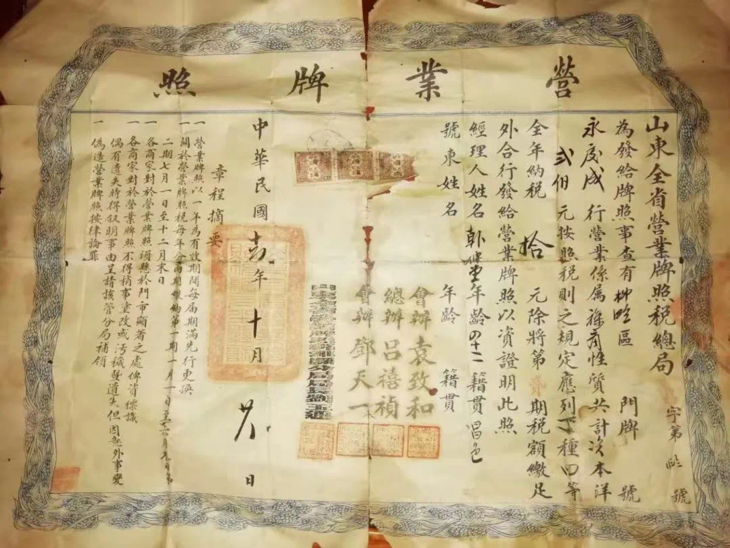 營業牌照
山東全省營業牌照稅總局
字第 號
為發給牌照事查有 區 門牌 號
永 成 行營業係屬 性質共計資本洋
貳佰 元按照稅則之規定應列丁種四等
全年納稅 拾 元除將第 期稅額繳足
外合行發給營業牌照以資證明此照
經理人姓名 年齡四十二 籍貫昌邑
號東姓名 年齡 籍貫
會辦袁致和
總辦呂禧禎
會辦鄧天一
中華民國 年十月 日
章程摘要
一 營業牌照以一年為有效期間每屆期滿先行更換
一 關於營業牌照稅每年分兩期繳納第一期一月一日至六月 日第
二期七月一日至十二月末日
一 各商家對於營業牌照須懸於門市顯著之處俾資標識
一 各商家對於營業牌照不得稍事塗改或污穢暨遺失但因意外事變
偶有遺失時得叙明事由呈請該管分局補領
一 偽造營業牌照按律論罪